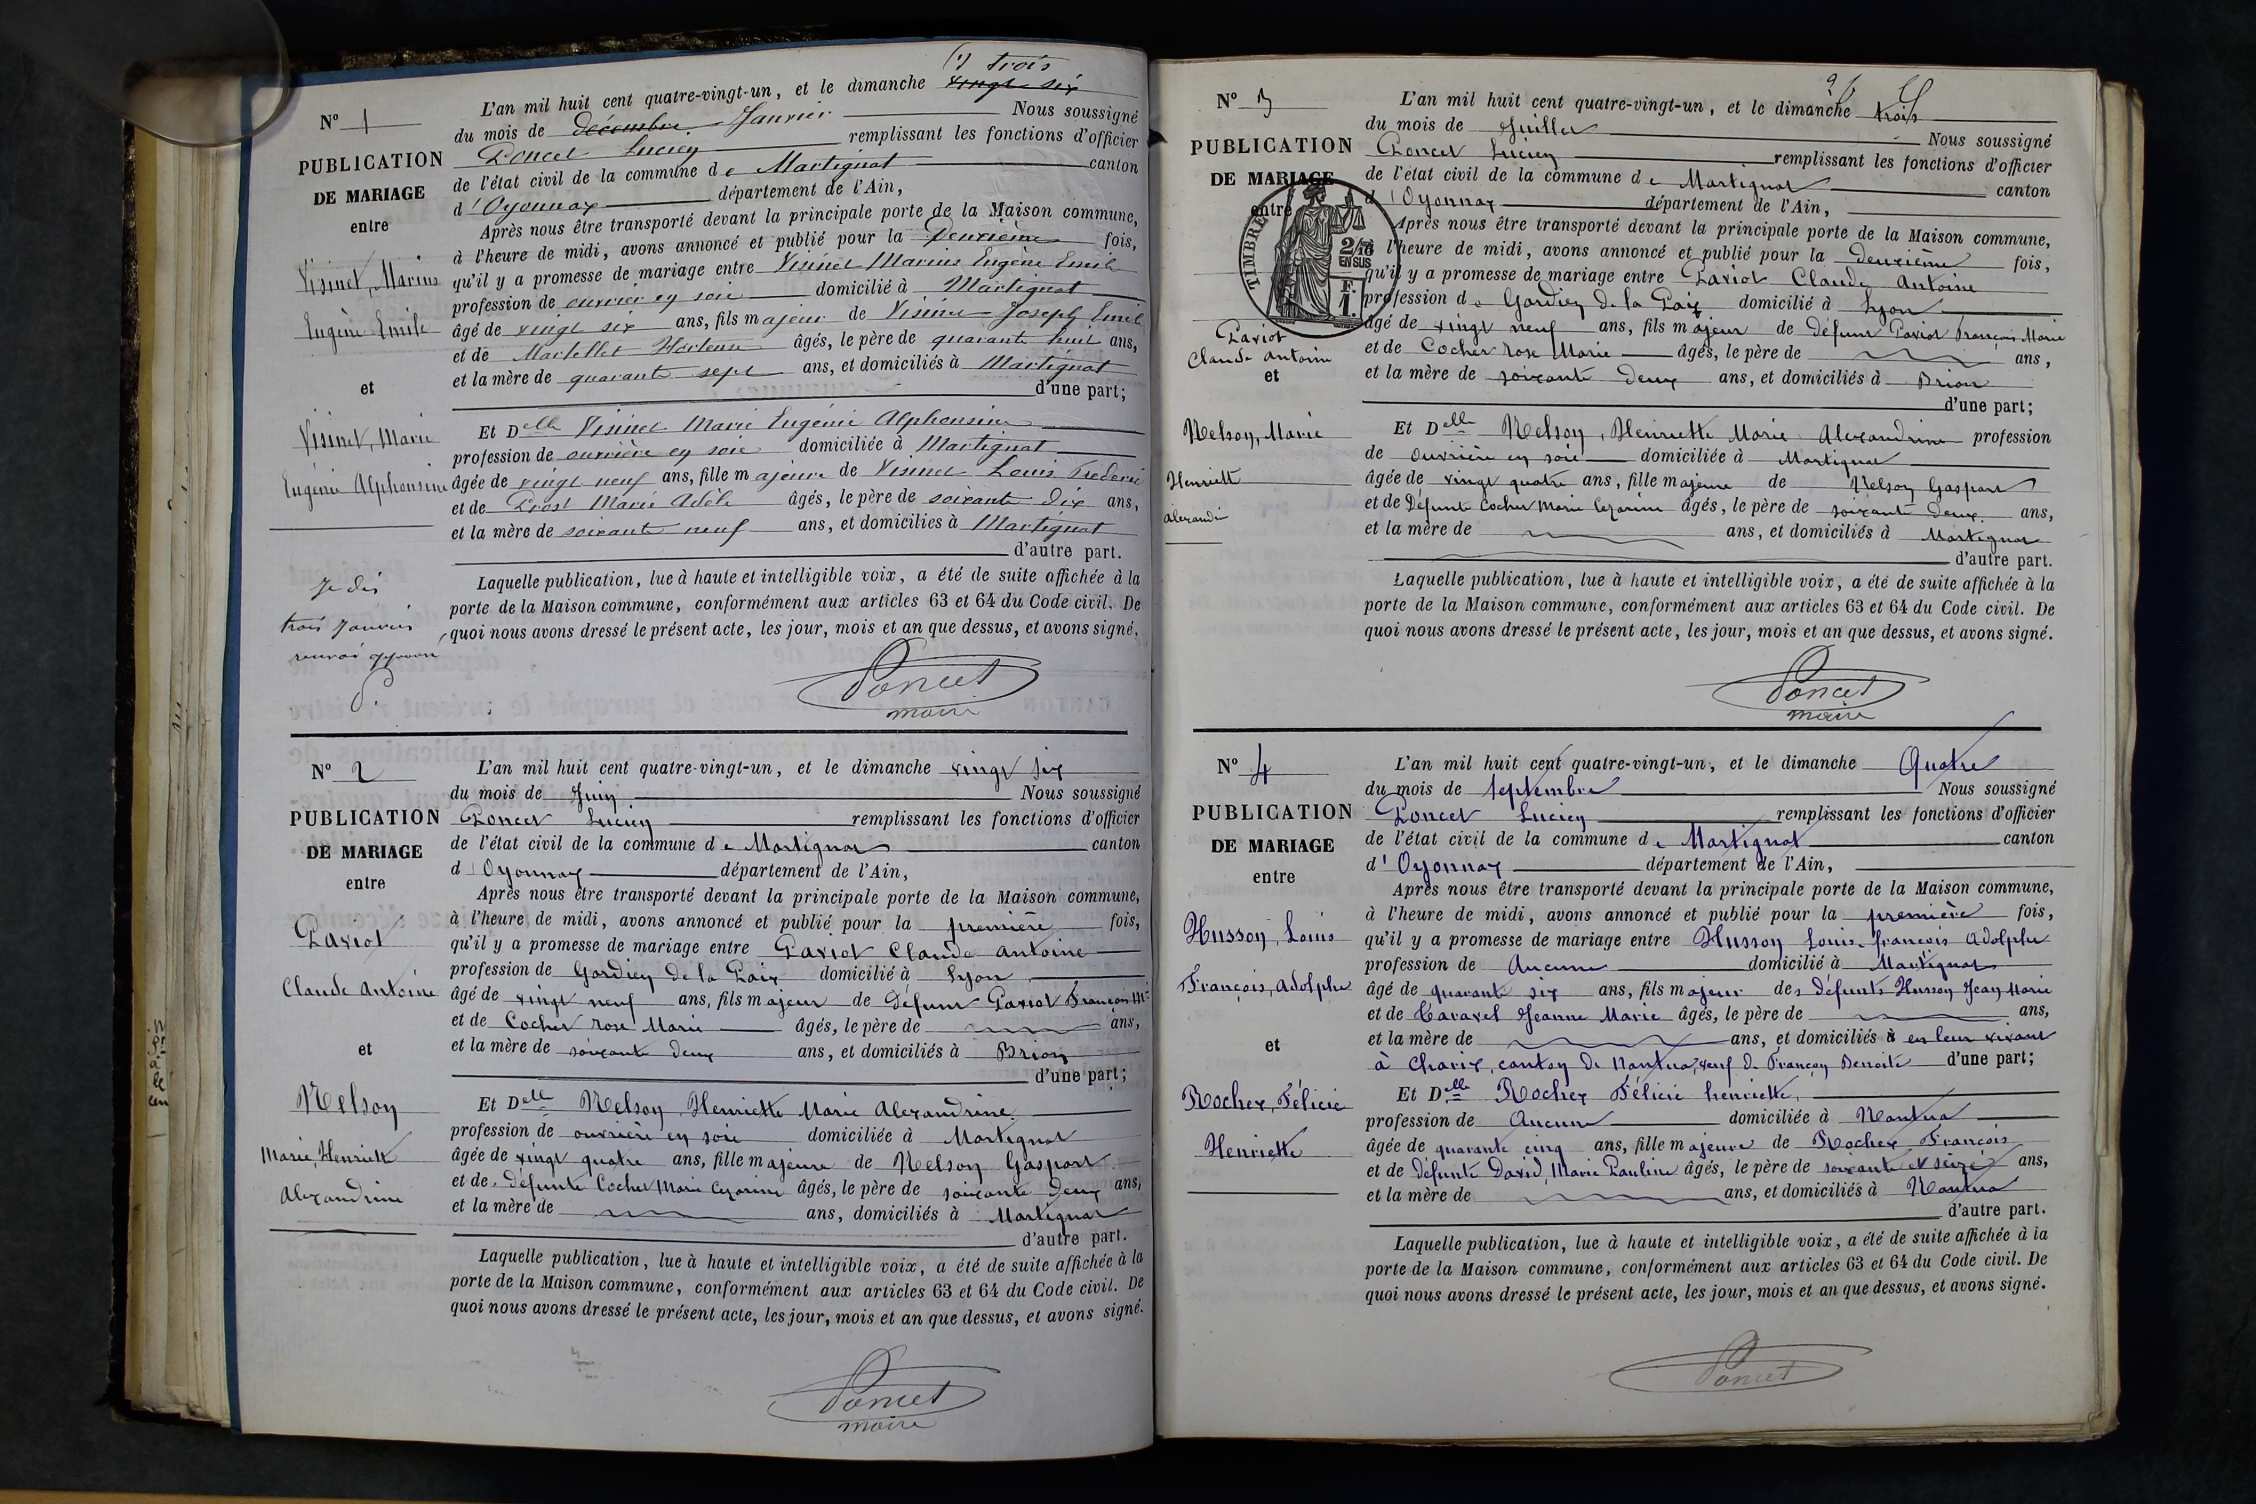 (1) trois
N° 1
L'an mil huit cent quatre-vingt-un, et le dimanche vingt six
du mois de décembre Janvier Nous soussigné
PUBLICATION
DE MARIAGE
entre
Visinet, Marius
Eugène Emile
et
Visinet, Marie
Eugénie Alphonsine
Poncet Lucien remplissant les fonctions d'officier
de l'état civil de la commune de Martignat canton
d'Oyonnax département de l'Ain,
Après nous être transporté devant la principale porte de la Maison commune,
à l'heure de midi, avons annoncé et publié pour la Deuxième fois,
qu'il y a promesse de mariage entre Visinet Marius Eugène Emile
profession de ouvrier en soie domicilié à Martignat
âgé de vingt six ans, fils majeur de Visinet Joseph Emile
et de Martellet Hortense âgés, le père de quarante huit ans,
et la mère de quarante sept ans, et domiciliés à Martignat
d'une part;
Et Delle Visinet Marie Eugénie Alphonsine
profession de ouvrière en soie domiciliée à Martignat
âgée de vingt neuf ans, fille majeure de Visinet Louis Frederic
et de Prost Marie Adèle âgés, le père de soixante dix ans,
et la mère de soixante neuf ans, et domiciliés à Martignat
d'autre part.
Laquelle publication, lue à haute et intelligible voix, a été de suite affichée à la
porte de la Maison commune, conformément aux articles 63 et 64 du Code civil. De
quoi nous avons dressé le présent acte, les jour, mois et an que dessus, et avons signé.
Je dis
trois Janvier
renvoi approuvé
P.
Poncet
maire
N° 2
PUBLICATION
DE MARIAGE
entre
Paviot
Claude Antoine
et
Nelson
Marie, Henriette
Alexandrine
L'an mil huit cent quatre-vingt-un, et le dimanche vingt six
du mois de Juin Nous soussigné
Poncet Lucien remplissant les fonctions d'officier
de l'état civil de la commune de Martignat canton
d'Oyonnax département de l'Ain,
Après nous être transporté devant la principale porte de la Maison commune,
à l'heure de midi, avons annoncé et publié pour la première fois,
qu'il y a promesse de mariage entre Paviot Claude Antoine
profession de Gardien de la Paix domicilié à Lyon
âgé de vingt neuf ans, fils majeur de Défunt Paviot François Mie
et de Cochet Rose Marie âgés, le père de ans,
et la mère de soixante deux ans, et domiciliés à Brion
d'une part;
Et Delle Nelson Henriette Marie Alexandrine
profession de ouvrière en soie domiciliée à Martignat
âgée de vingt quatre ans, fille majeure de Nelson Gaspart
et de défunte Cochet Marie Cezarine âgés, le père de soixante deux ans,
et la mère de ans, domiciliés à Martignat
d'autre part.
Laquelle publication, lue à haute et intelligible voix, a été de suite affichée à la
porte de la Maison commune, conformément aux articles 63 et 64 du Code civil. De
quoi nous avons dressé le présent acte, les jour, mois et an que dessus, et avons signé.
Poncet
maire
N° 3
PUBLICATION
DE MARIAGE
entre
TIMBRE
2/10
EN SUS
F.
1.
Paviot
Claude Antoine
et
Nelson, Marie
Henriette
Alexandri
L'an mil huit cent quatre-vingt-un, et le dimanche trois
du mois de Juillet Nous soussigné
Poncet Lucien remplissant les fonctions d'officier
de l'état civil de la commune de Martignat canton
d'Oyonnax département de l'Ain,
Après nous être transporté devant la principale porte de la Maison commune,
à l'heure de midi, avons annoncé et publié pour la deuxième fois,
qu'il y a promesse de mariage entre Paviot Claude Antoine
profession de Gardien de la Paix domicilié à Lyon
âgé de vingt neuf ans, fils majeur de défunt Paviot François Marie
et de Cochet Rose Marie âgés, le père de ans,
et la mère de soixante deux ans, et domiciliés à Brion
d'une part;
Et Delle Nelson, Henriette Marie Alexandrine profession
de ouvrière en soie domiciliée à Martignat
âgée de vingt quatre ans, fille majeure de Nelson Gaspart
et de Défunte Cochet Marie Cezarine âgés, le père de soixante deux ans,
et la mère de ans, et domiciliés à Martignat
d'autre part.
Laquelle publication, lue à haute et intelligible voix, a été de suite affichée à la
porte de la Maison commune, conformément aux articles 63 et 64 du Code civil. De
quoi nous avons dressé le présent acte, les jour, mois et an que dessus, et avons signé.
Poncet
maire
N° 4
PUBLICATION
DE MARIAGE
entre
Husson, Louis
François, Adolphe
et
Rochex, Félicie
Henriette
L'an mil huit cent quatre-vingt-un, et le dimanche Quatre
du mois de septembre Nous soussigné
Poncet Lucien remplissant les fonctions d'officier
de l'état civil de la commune de Martignat canton
d'Oyonnax département de l'Ain,
Après nous être transporté devant la principale porte de la Maison commune,
à l'heure de midi, avons annoncé et publié pour la première fois,
qu'il y a promesse de mariage entre Husson Louis françois Adolphe
profession de Aucune domicilié à Martignat
âgé de quarante six ans, fils majeur des défunts Husson Jean Marie
et de Caravel Jeanne Marie âgés, le père de ans,
et la mère de ans, et domiciliés à en leur vivant
à Charix, canton de Nantua, veuf de Françon Benoite d'une part;
Et Delle Rochex Félicie henriette,
profession de Aucune domiciliée à Nantua
âgée de quarante cinq ans, fille majeure de Rochex François
et de défunte David, Marie Pauline âgés, le père de soixante et seize ans,
et la mère de ans, et domiciliés à Nantua
d'autre part.
Laquelle publication, lue à haute et intelligible voix, a été de suite affichée à la
porte de la Maison commune, conformément aux articles 63 et 64 du Code civil. De
quoi nous avons dressé le présent acte, les jour, mois et an que dessus, et avons signé.
Poncet